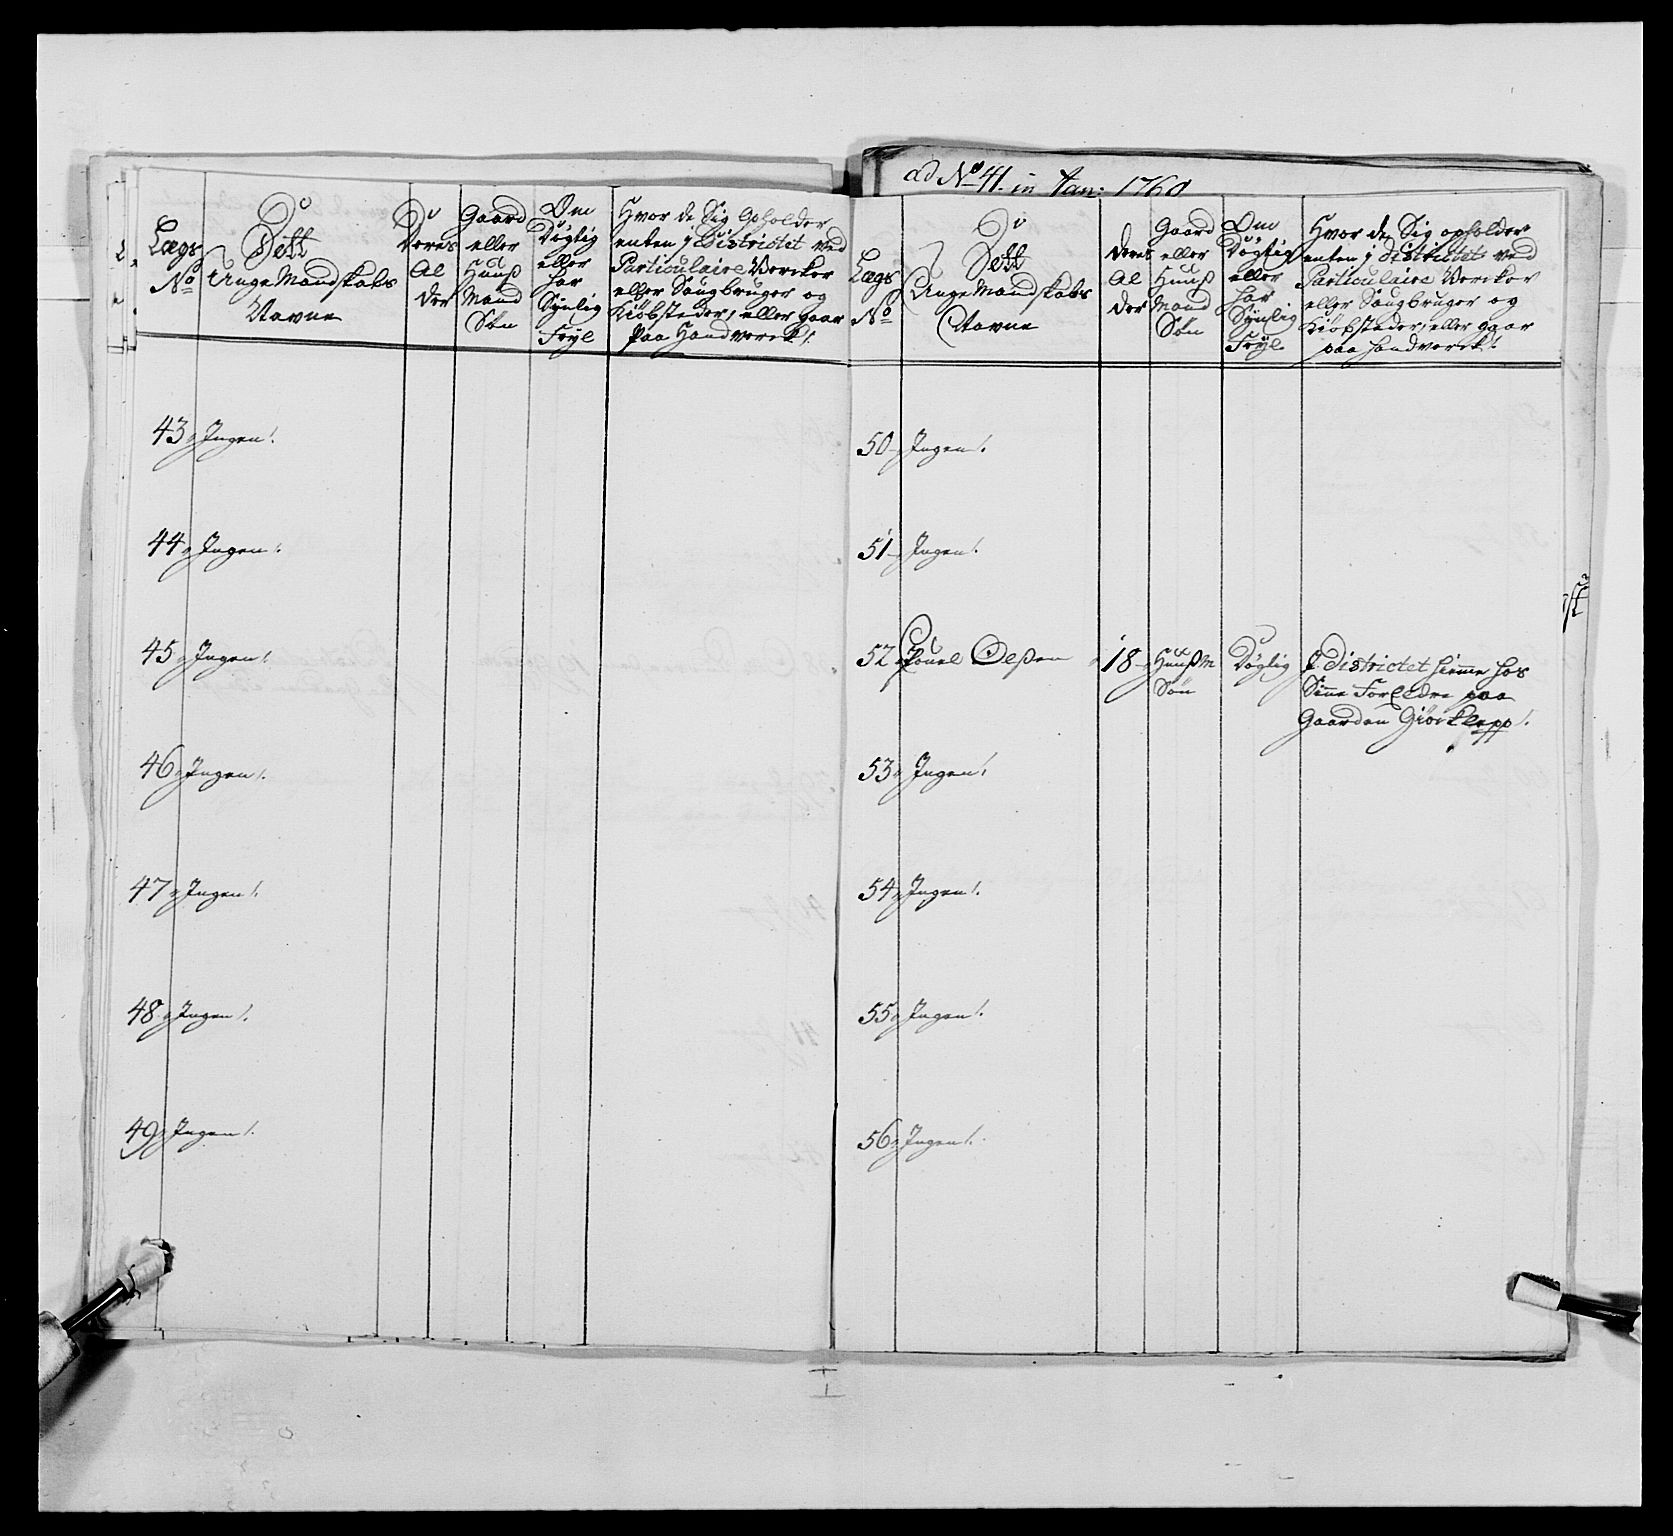 ad No 41. in Jan: 1760
Lægs
No
Dett
Unge Mandskabs
Navne
Deres
Al
der
Gaard
eller
Huuß
Mand
Søn
Om
Dygtig
eller
har
Synlig
Feyl
Hvor de Sig Opholder
enten i Districtet ved
Particulaire Vercker
eller Saugbruger og
Kiøbsteder, eller gaar
Paa Handverck /.
43 Ingen /.
44 Ingen /.
45 Ingen /.
46 Ingen /.
47 Ingen /.
48 Ingen /.
49 Ingen /.
Lægs
No
Dett
Unge Mandskabs
Navne
Deres
Al
der
Gaard
eller
Huuß
Mand
Søn
Om
Dygtig
eller
har
Synlig
Feyl
Hvor de Sig opholder
enten i Districtet ved
Particulaire Vercker
eller Saugbruger og
Kiøbsteder, eller gaar
paa handverck /.
50 Ingen /.
51 Ingen /.
52 Pouel Olßen 18 Huußm Dygtig I Districtet hieme hos
Søn Sine Forældre paa
Gaarden Giörklepp /.
53 Ingen /.
54 Ingen /.
55 Ingen /.
56 Ingen /.